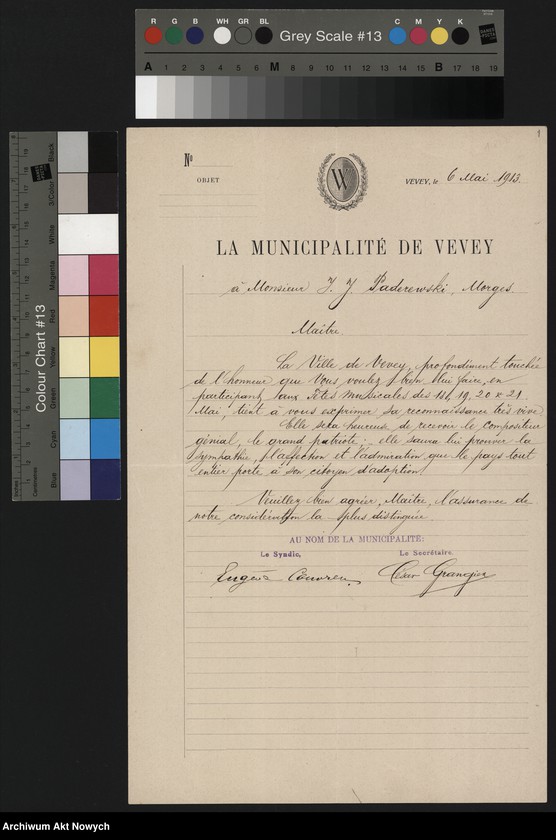 R G B WH GR BL Grey Scale #13 C M Y K
A 1 2 3 4 5 6 M 8 9 10 11 12 13 14 15 B 17 18 19
Colour Chart #13
Blue Cyan Green Yellow Red Magenta White 3/Color Black
Centimetres
1
No
OBJET
W
VEVEY, le 6 Mai 1913.
LA MUNICIPALITÉ DE VEVEY
à Monsieur J. J. Paderewski, Morges.
Maître
La Ville de Vevey, profondiment touchée
de l'honneur que Vous voulez bien lui faire, en
participant aux Fêtes musicales des 18, 19, 20 & 21
Mai, tient à vous exprimer sa reconnaissance très vive
Elle sera heureuse de recevoir le compositeur
génial, le grand patriote; elle saura lui prouver la
sympathie, l'affection et l'admiration que le pays tout
entier porte à son citoyen d'adoption
Veuillez bien agréer, Maître, l'assurance de
notre considération la plus distinguée
AU NOM DE LA MUNICIPALITÉ:
Le Syndic, Le Secrétaire.
Eugène Couvreu
Archiwum Akt Nowych